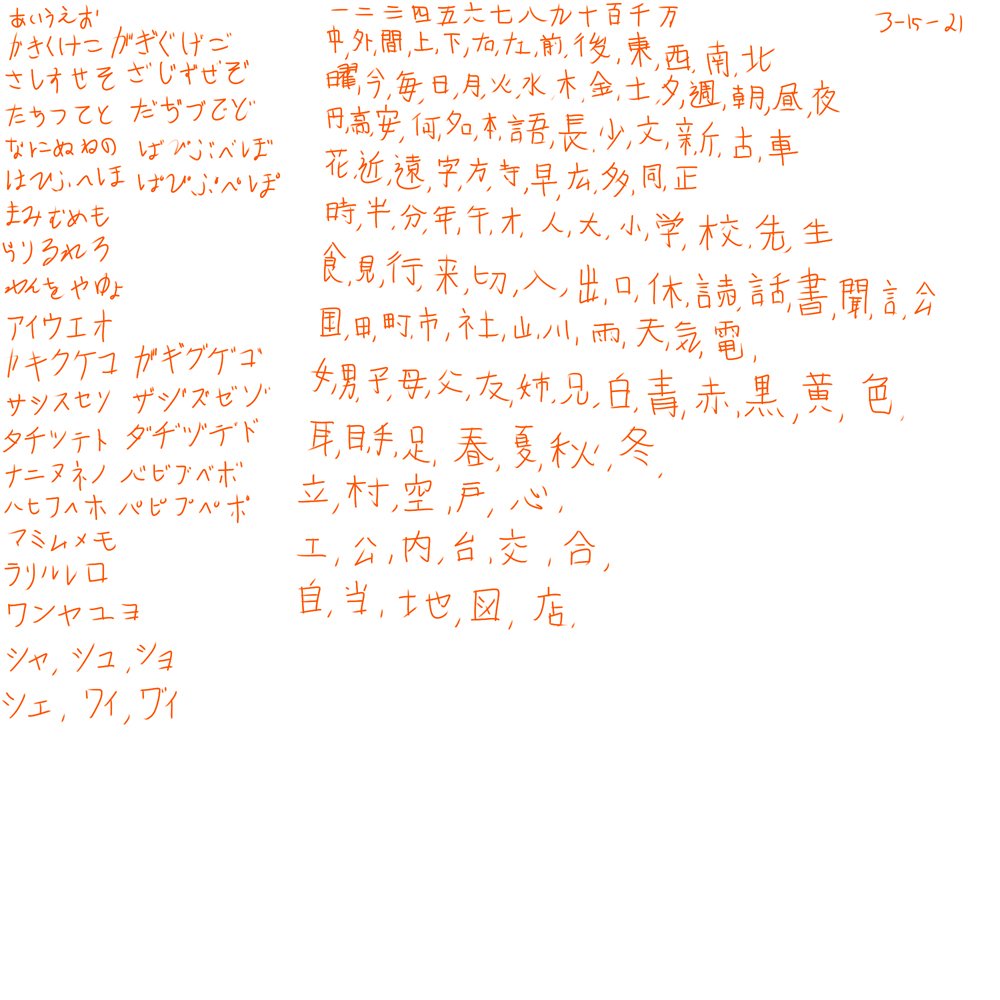 あいうえお
かきくけこ がぎぐげご
さしすせそ ざじずぜぞ
たちつてと だぢづでど
なにぬねの ばびぶべぼ
はひふへほ ぱぴぷぺぽ
まみむめも
らりるれろ
わんをやゆよ
アイウエオ
ハキクケコ ガギグゲゴ
サシスセソ ザジズゼゾ
タチツテト ダヂヅデド
ナニヌネノ バビブベボ
ハヒフヘホ パピプペポ
マミムメモ
ラリルレロ
ワンヤユヨ
シャ, シュ, ショ
シェ, ワィ, ヴィ
一二三四五六七八九十百千万
中,外,間,上,下,右,左,前,後,東,西,南,北
曜,今,毎,日,月,火,水,木,金,土,夕,週,朝,昼,夜
円,高,安,何,名,本,語,長,少,文,新,古,車
花,近,遠,字,方,寺,早,広,多,同,正
時,半,分,年,午,才,人,大,小,学,校,先,生
食,見,行,来,切,入,出,口,休,読,話,書,聞,言,公
国,田,町,市,社,山,川,雨,天,気,電,
女,男,子,母,父,友,姉,兄,白,青,赤,黒,黄,色,
耳,目,手,足,春,夏,秋,冬,
立,村,空,戸,心,
工,公,内,台,交,合,
自,当,地,図,店,
3-15-21